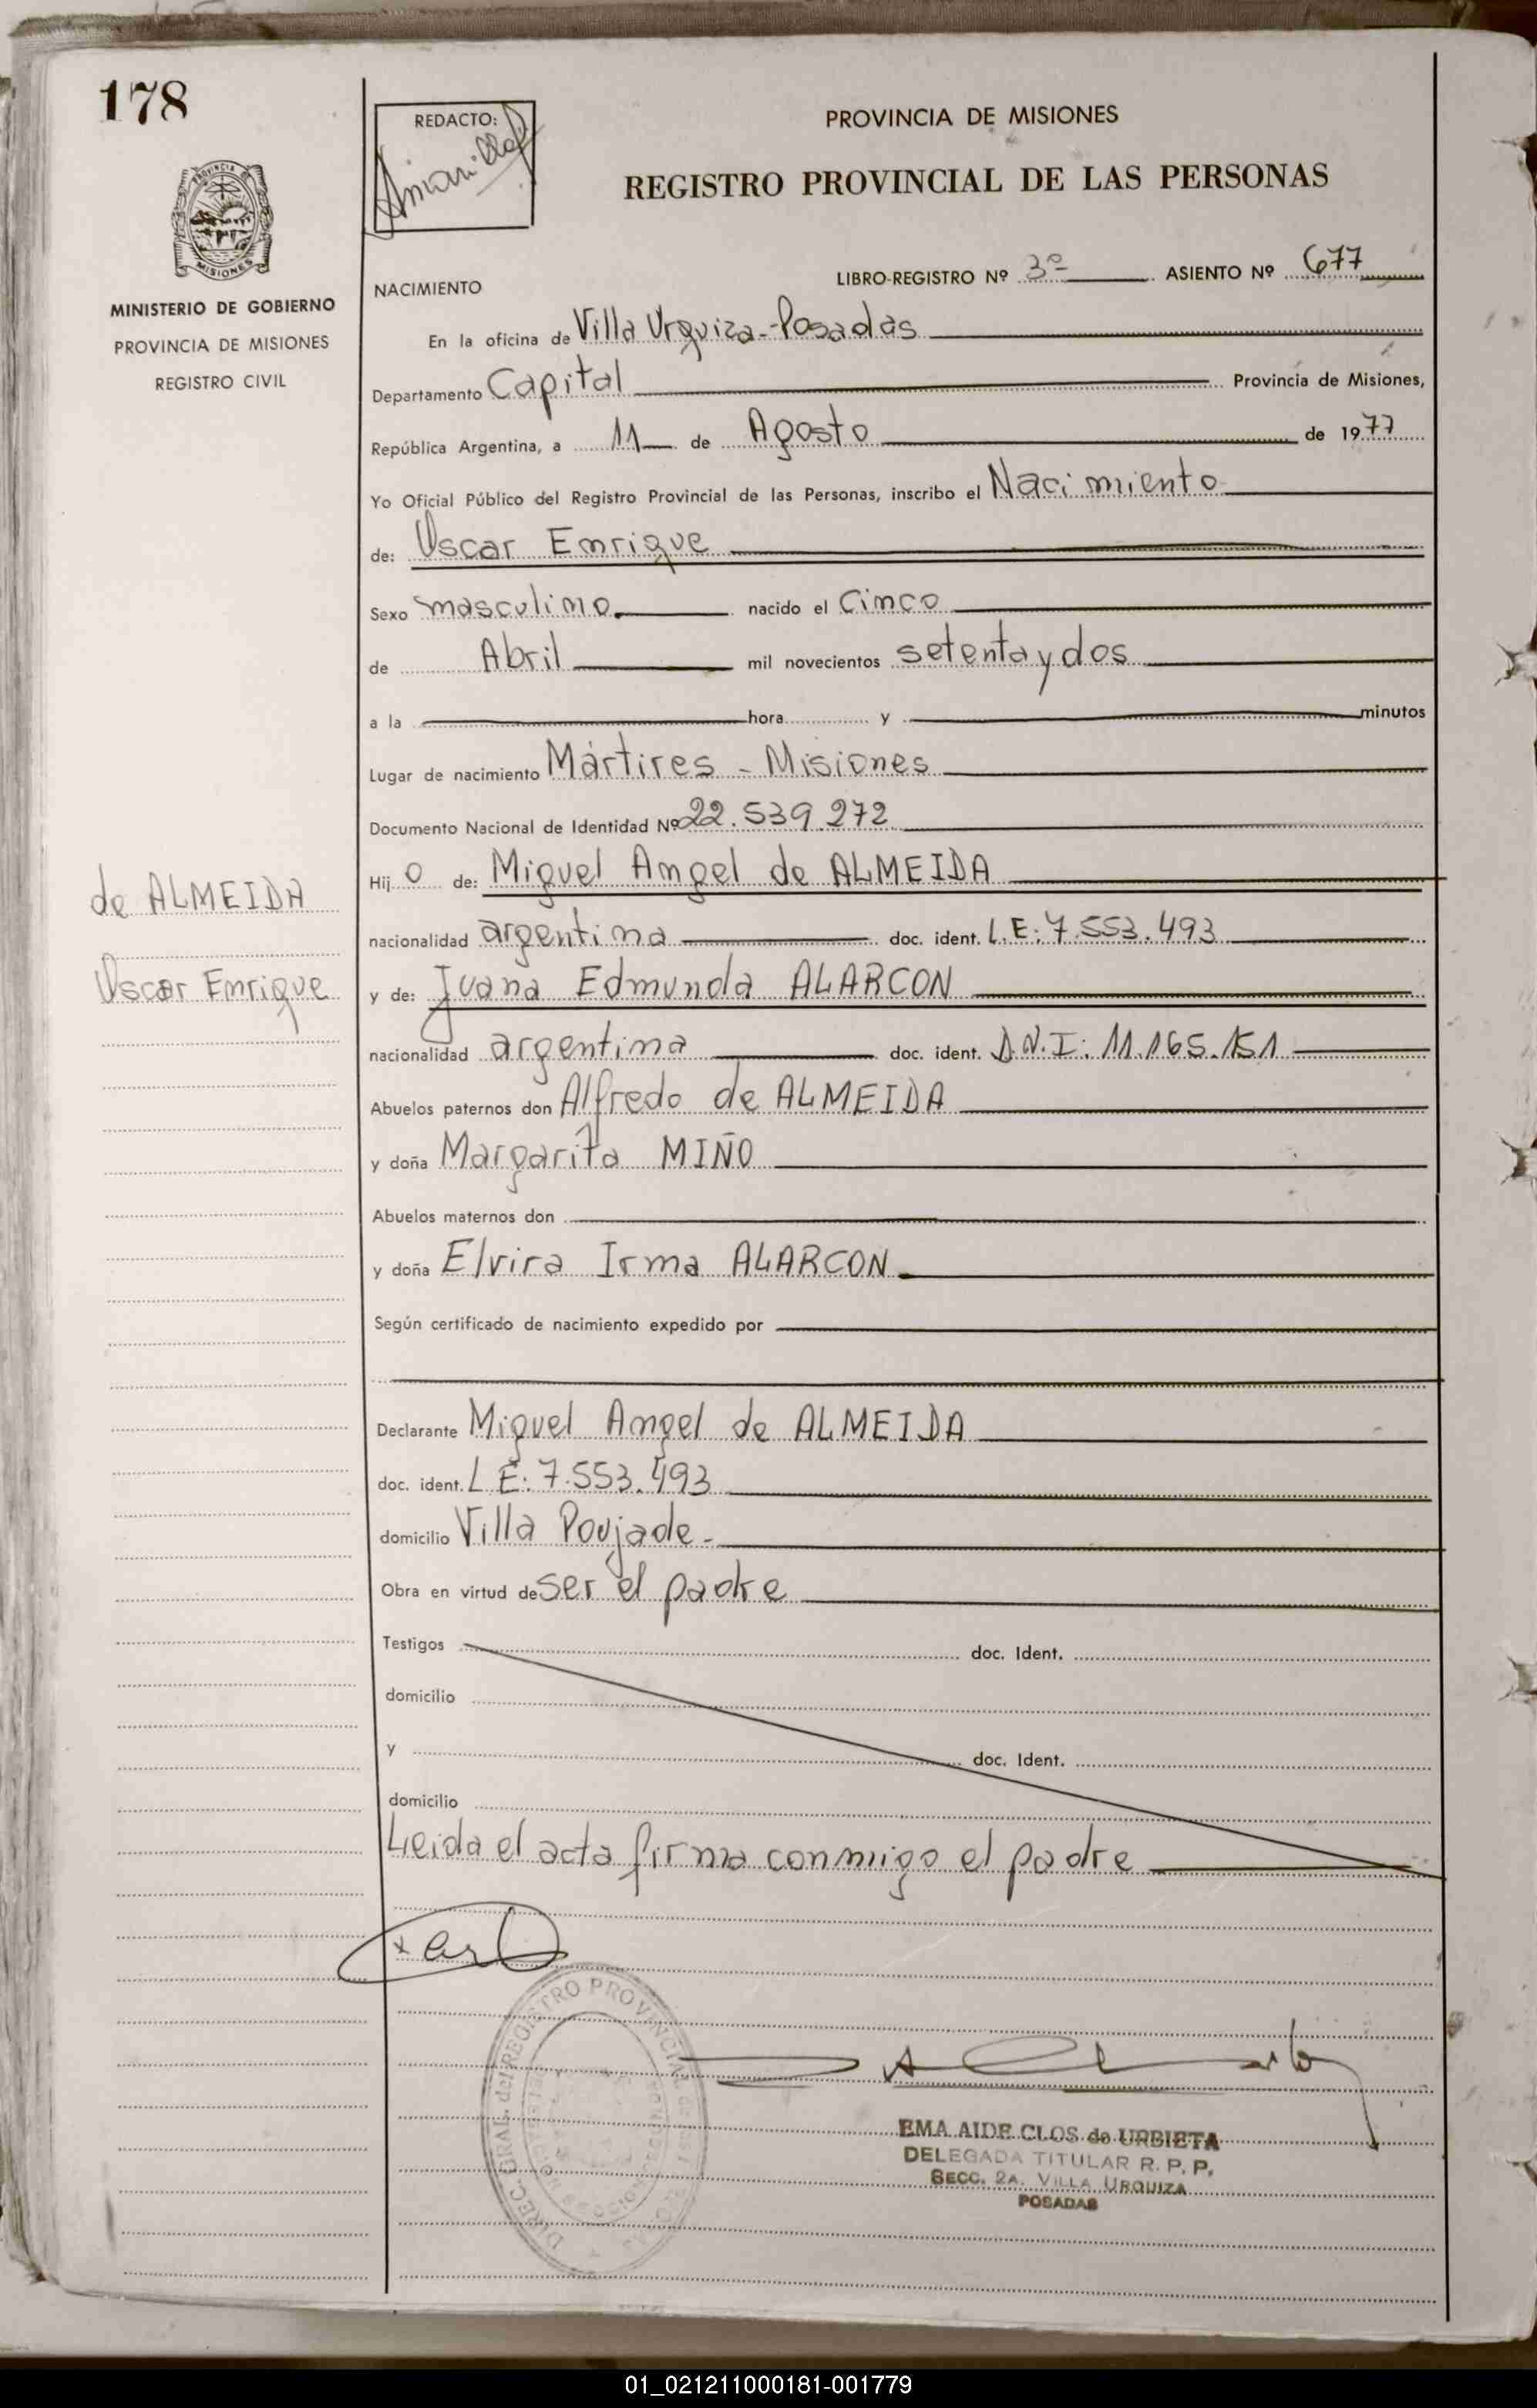 178
REDACTO:
PROVINCIA DE MISIONES
REGISTRO PROVINCIAL DE LAS PERSONAS
PROVINCIA DE
MISIONES
MINISTERIO DE GOBIERNO
PROVINCIA DE MISIONES
REGISTRO CIVIL
NACIMIENTO
LIBRO-REGISTRO Nº 3º ASIENTO Nº 677
En la oficina de Villa Urquiza - Posadas
Departamento Capital Provincia de Misiones,
República Argentina, a 11 de Agosto de 1977
Yo Oficial Público del Registro Provincial de las Personas, inscribo el Nacimiento
de: Oscar Enrique
Sexo masculino. nacido el Cinco
de Abril mil novecientos setenta y dos
a la hora y minutos
Lugar de nacimiento Mártires - Misiones
Documento Nacional de Identidad Nº 22.539.272
Hij o de: Miguel Angel de ALMEIDA
de ALMEIDA
Oscar Enrique
nacionalidad argentina doc. ident. L.E: 7.553.493
y de: Juana Edmunda ALARCON
nacionalidad argentina doc. ident. D.N.I: 11.165.151
Abuelos paternos don Alfredo de ALMEIDA
y doña Margarita MIÑO
Abuelos maternos don
y doña Elvira Irma ALARCON
Según certificado de nacimiento expedido por
Declarante Miguel Angel de ALMEIDA
doc. ident. L.E: 7.553.493
domicilio Villa Poujade -
Obra en virtud de ser el padre
Testigos doc. Ident.
domicilio
y doc. Ident.
domicilio
Leida el acta firma conmigo el padre
DIREC. GRAL. del REGISTRO PROVINCIAL
EMA AIDE CLOS de URBIETA
DELEGADA TITULAR R. P. P.
SECC. 2A. VILLA URQUIZA
POSADAS
01_021211000181-001779